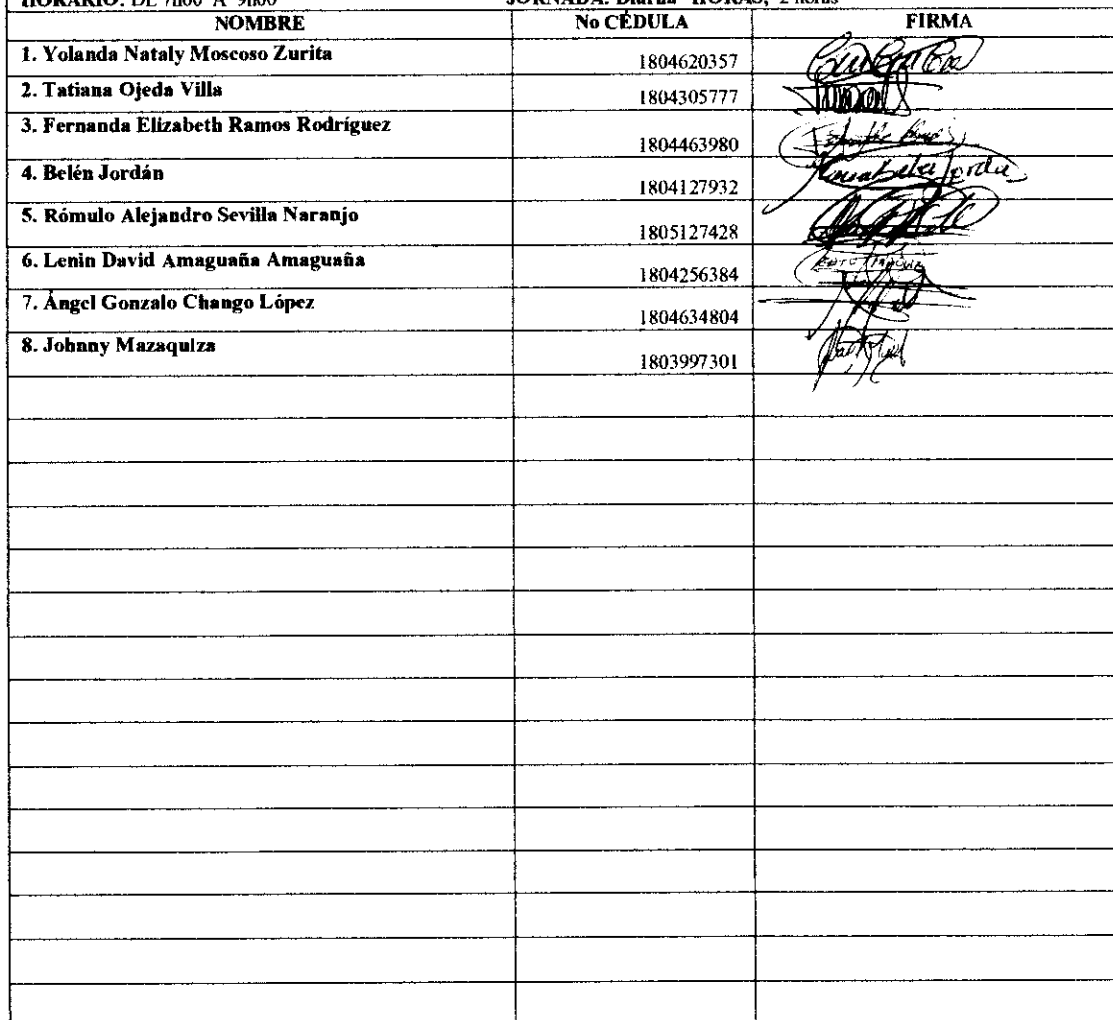 HORARIO: DE 7h00 A 9h00 JORNADA: Diurna HORAS, 2 horas
NOMBRE No CÉDULA FIRMA
1. Yolanda Nataly Moscoso Zurita 1804620357
2. Tatiana Ojeda Villa 1804305777
3. Fernanda Elizabeth Ramos Rodríguez 1804463980
4. Belén Jordán 1804127932
5. Rómulo Alejandro Sevilla Naranjo 1805127428
6. Lenin David Amaguaña Amaguaña 1804256384
7. Ángel Gonzalo Chango López 1804634804
8. Johnny Mazaquiza 1803997301